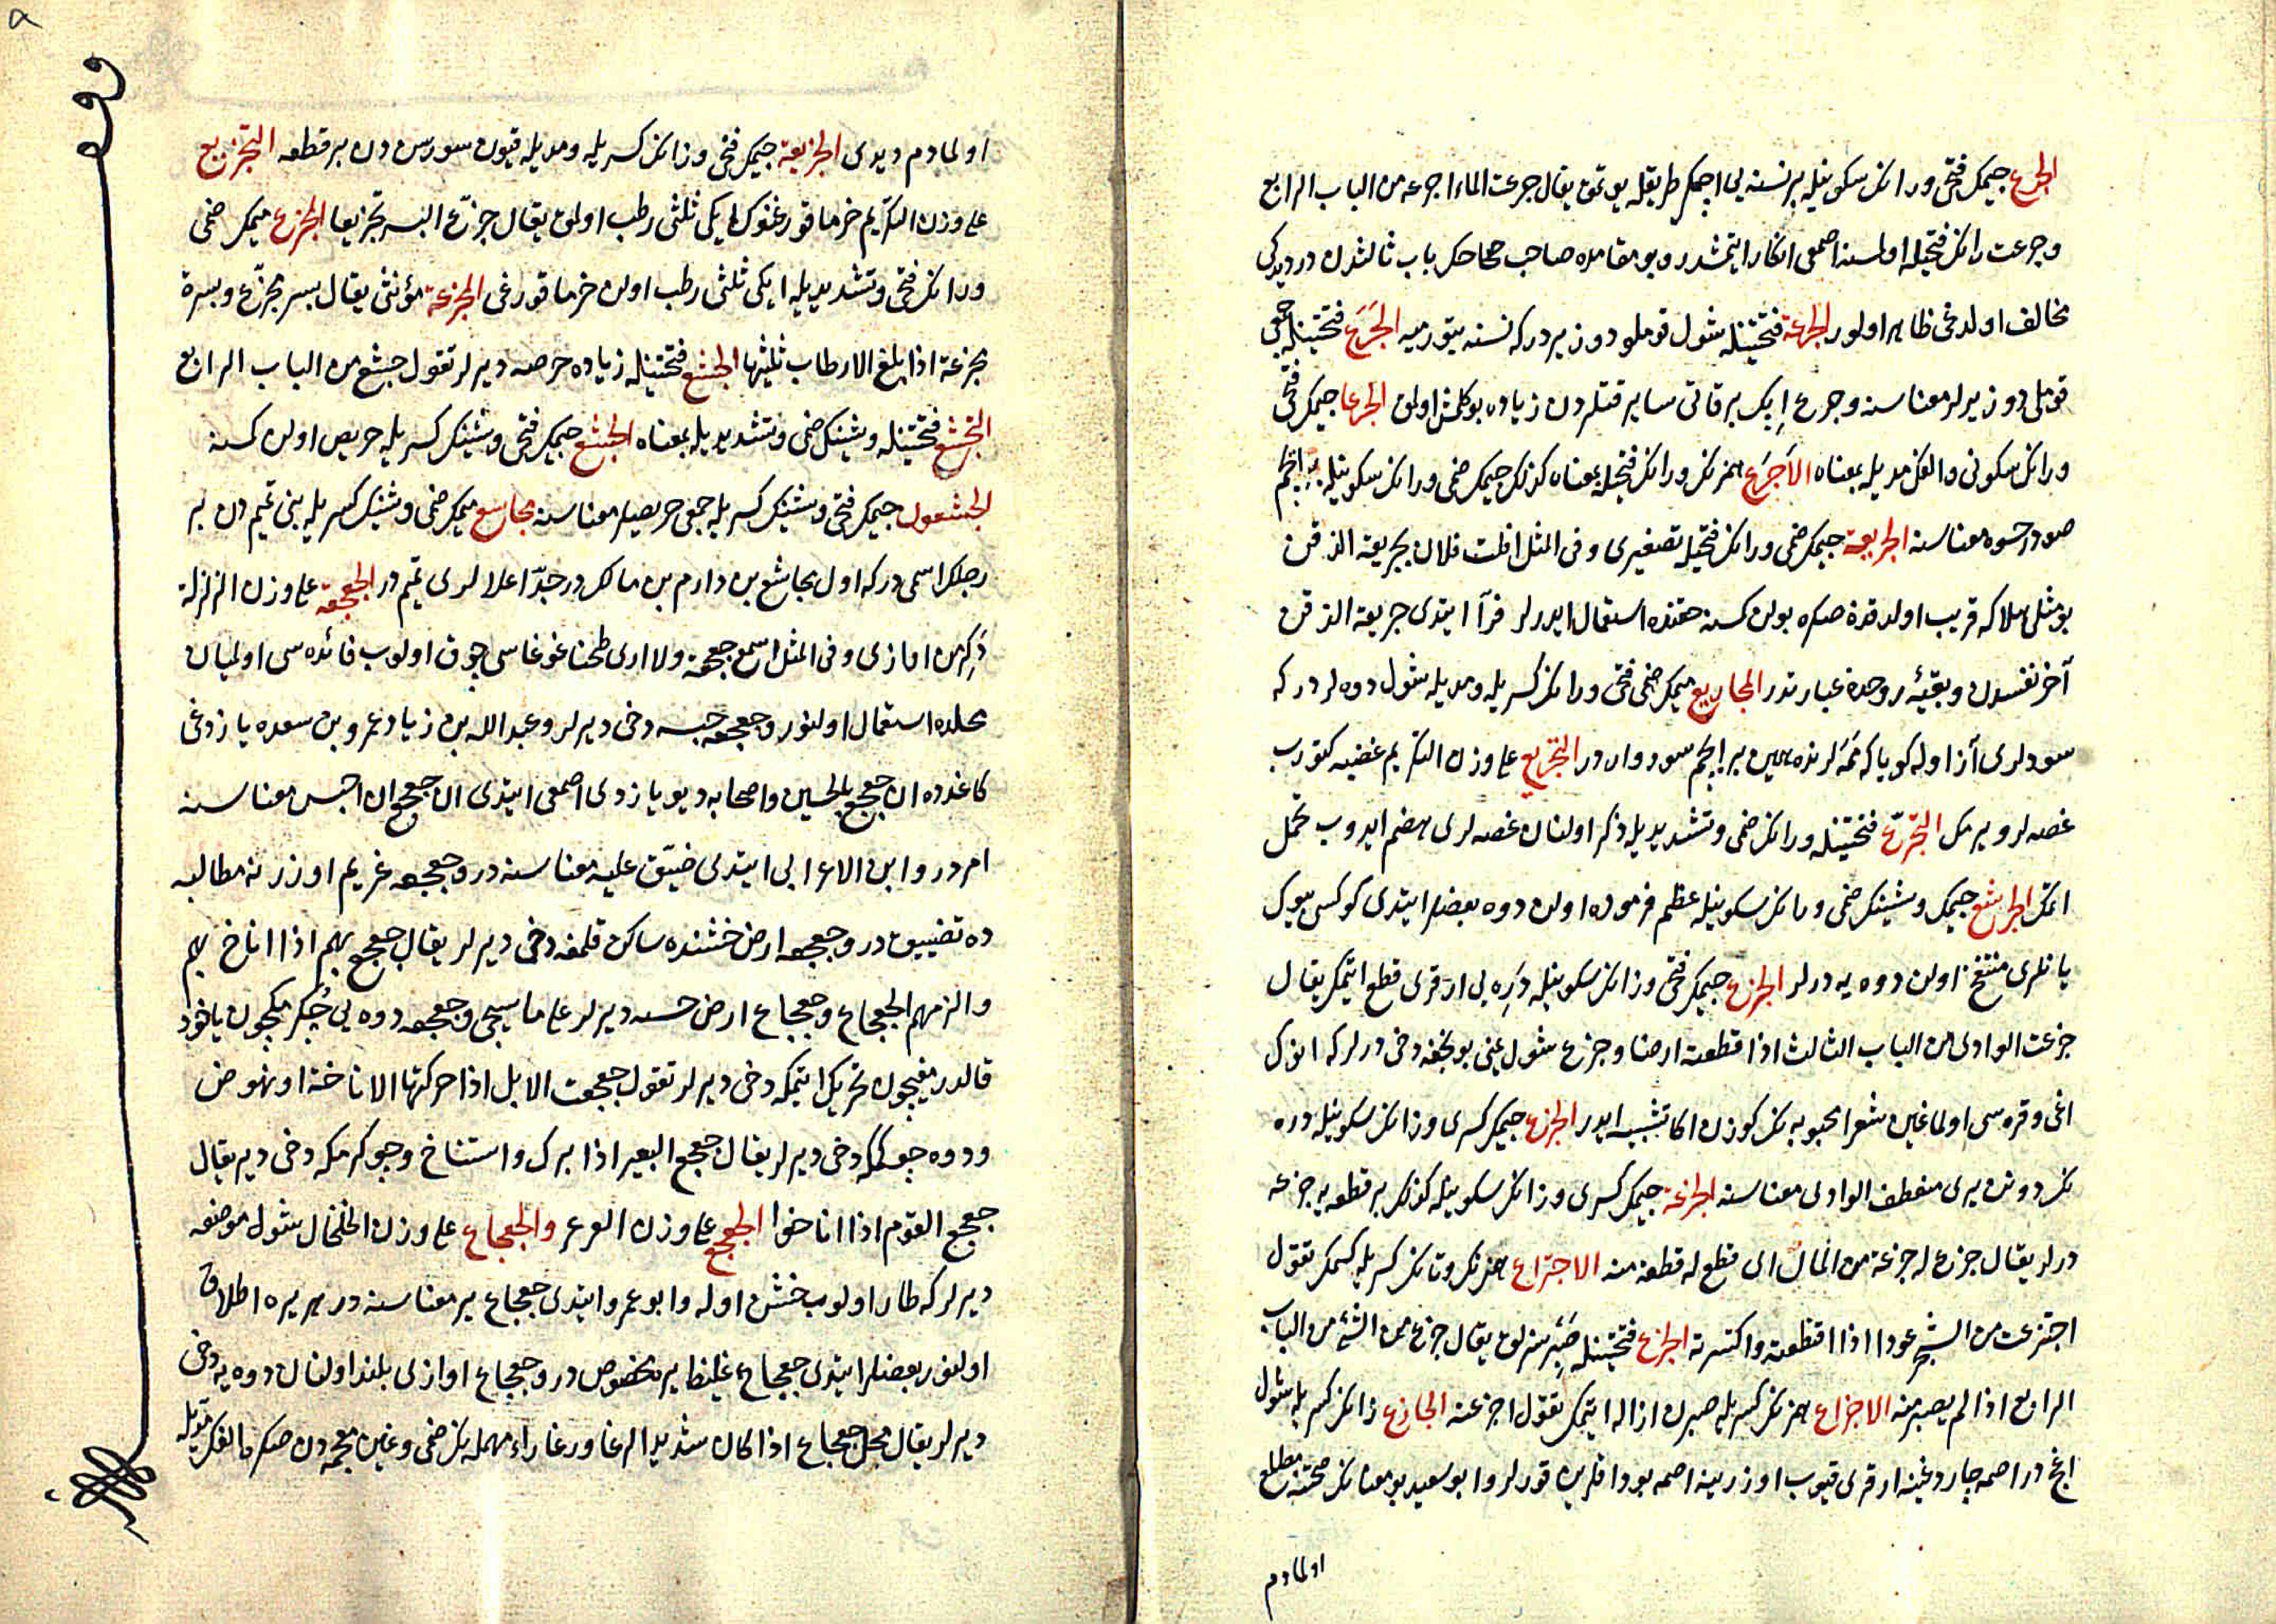 الجرع جيمك فتحى ورانك سكونيله بر نسنه يى اچمك طريقله يوتمق يقال جرعت الماء اجرعه من الباب الرابع
وجرعت رانك فتحيله اولسنه اصمعى انكار ايتمشدر وبو مقامده صاحب صحاحك باب ثالثدن در ديدكى
مخالف اولدغى ظاهر اولور الجرعة فتحتينله شول قوملو دوز يردركه نسنه بتورميه الجَرَع فتحتينله جمعى
قوملى دوز يرلر معناسنه وجرع ايپك بر قاتى ساير قتلردن زياده بوكلمش اولمق الجرعا جيمك فتحى
ورانك سكونى والفك مديله بمعناه الاَجرَع همزنك ورانك فتحيله بمعناه كذلك جيمك ضمى ورانك سكونيله بر ايچم
صودر حسوه معناسنه الجريعة جيمك ضمى ورانك فتحيله تصغيرى وفى المثل افلت فلان بجريعة الذقن
بو مثلى هلاكه قريب اولدقدن صكره بولن كمسنه حقنده استعمال ايدرلر فرّا ايتدى جريعة الذقن
آخر نفسدن وبقيهٔ روحدن عبارتدر المجاريع ميمك ضمى فتحى ورانك كسريله ومديله شول دوه لردركه
سودلرى آز اوله كويا كه ممه لرنده همين بر ايچم سود واردر التجريع على وزن التكريم غضبه كتورب
غصه لر ويرمك التجرّع فتحتينله ورانك ضمى وتشديديله ذكر اولنان غصه لرى هضم ايدوب تحمل
اتمك الجرشع جيمك وشينك ضمى ورانك سكونيله عظم فرموده اولن دوه بعضلر ايتدى كوكسى بيوك
يانلرى منتفخ اولن دوه يه درلر الجزع جيمك فتحى وزانك سكونيله دَره يى ارقرى قطع ايتمك يقال
جزعت الوادى من الباب الثالث اذا قطعته ارضا وجزع شول يمنى بونجغه دخى درلركه انوك
اغى وقره سى اولماغين شعرا محبوبه نك كوزن اكا تشبيه ايدر الجزع جيمك كسرى وزانك سكونيله دره
نك دونه يرى منعطف الوادى معناسنه الجزعة جيمك كسرى وزانك سكونيله كذلك بر قطعه يه جزعه
درلر يقال جزع له جزعة من المال اى قطع له قطعة منه الاجتزاع همزنك وتانك كسريله كسمك تقول
اجتزعت من الشجر عودا اذا اقتطعته واكتسرته الجزع فتحتينله صَبِر سزلق يقال جزع من الشئ من الباب
الرابع اذا لم يصبر منه الاجزاع همزنك كسريله صبرن ازاله ايتمك تقول اجزعته الجازع زانك كسريله شول
اغجدر اصمه چارده غينه ارقرى قيوب اوزرينه اصمه بوداقلرين قورلر وابو سعيد بو معنانك صحتنه مطلع
اولمادم
اولمادم ديدى الجزيعة جيمك فتحى وزانك كسريله ومديله قيون سورسندن بر قطعه التجزيع
على وزن التكريم خرما قورغنوك ايكى ثلثى رطب اولمق يقال جزّع البسر تجزيعا المجزع ميمك ضمى
وزانك فتحى وتشديديله ايكى ثلثى رطب اولن خرما قورغى المجزعة مؤنثى يقال بسر مجزّع وبسرة
مجزعة اذا بلغ الارطاب ثلثيها الجشع فتحتينله زياده حرصه ديرلر تقول جشع من الباب الرابع
التجشع فتحتينله وشينك ضمى وتشديديله بمعناه الجشع جيمك فتحى وشينك كسريله حريص اولن كمسنه
الجشعون جيمك فتحى وشينك كسريله جمعى حريصلر معناسنه مجاشع ميمك ضمى وشينك كسريله بنى تميمدن بر
رجلك اسمى دركه اول مجاشع بن دارم بن مالك در جدّ اعلالرى تميم در الجعجعة على وزن الزلزلة
دَكرمن اوازى وفى المثل اسمع جعجعة ولا ارى طحنا غوغاسى چوق اولوب فائده سى اولميان
محلده استعمال اولنور وجعجعه حبسه دخى ديرلر وعبد الله بن زياد عمرو بن سعده يازدغى
كاغدده ان جعجع بالحسين واصحابه ديو يازدى اصمعى ايتدى ان جعجع ان احبس معناسنه
امردر وابن الاعرابى ايتدى ضيّق عليه معناسنه در وجعجعه غريم اوزرنه مطالبه
ده تضييق در وجعجعه ارض خشنده ساكن قلمغه دخى ديرلر يقال جعجع بهم اذا اناخ بهم
والزمهم الجعجاع وجعجاع ارض خشنه ديرلر على ما سيجى وجعجعه دوه يى چكرمكچون ياخود
قالدرمغيچون تحريك ايتمكه دخى ديرلر تقول جعجعت الابل اذا حركتها الاناخة او نهوض
ودوه چوكمكه دخى ديرلر يقال جعجع البعير اذا برك واستناخ وچوكرمكه دخى ديريقال
جعجع القوم اذا اناخوا الجعجع على وزن العرعر والجعجاع على وزن الخلخال شول موضعه
ديرلركه طار اولوب خشن اوله وابو عمرو ايتدى جعجاع ير معناسنه در هر يره اطلاق
اولنور بعضلر ايتدى جعجاع غليظ يره مخصوص در وجعجاع اوازى بلند اولنان دوه يه دخى
ديرلر يقال فحل جعجاع اذا كان شديد الرغا ورغا راء مهمله نك ضمى وغين معجمه دن صكره الفك مديله